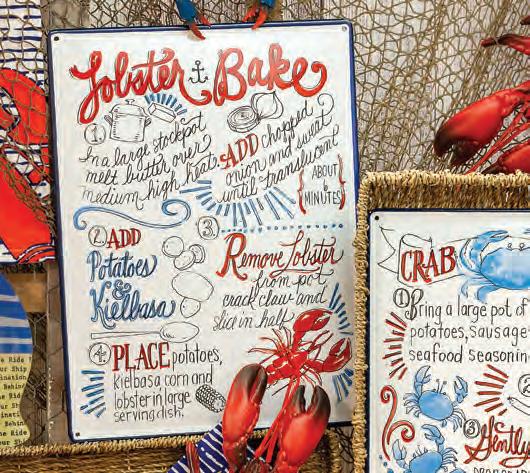 Lobster Bake
1
In a large stockpot
melt butter over
medium high heat.
ADD chopped
onion and sweat
until translucent
ABOUT
6
MINUTES
2 ADD
Potatoes
&
Kielbasa
3
Remove Lobster
from pot
crack claw and
slice in half
4 PLACE potatoes,
kielbasa corn and
lobster in large
serving dish.
CRAB
1 Bring a large pot of
potatoes, sausage
seafood seasonin
3
Gently
he Ride
Our Ship
ination
Behin
he Ride